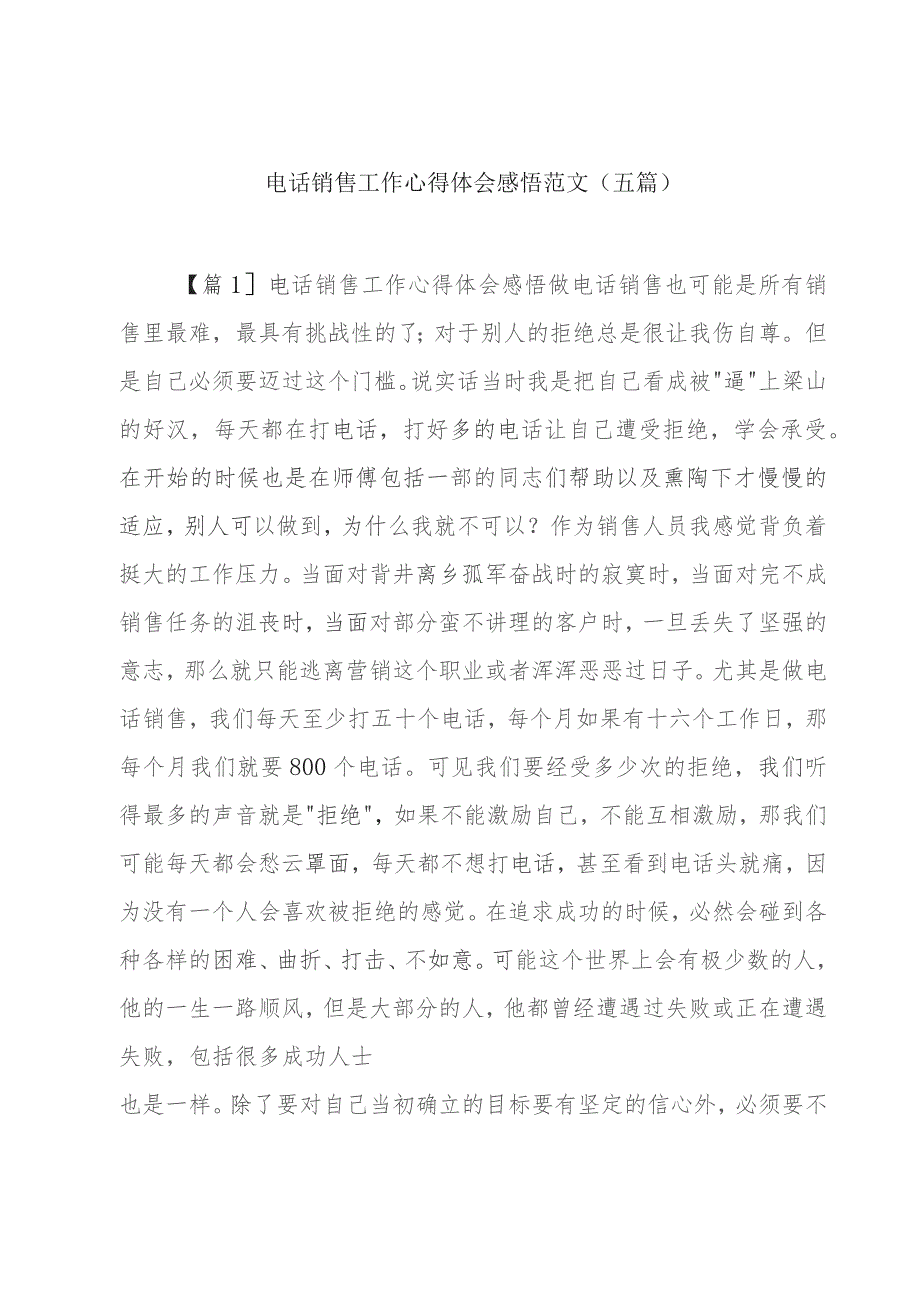 电话销售工作心得体会感悟范文（五篇）
【篇1］电话销售工作心得体会感悟做电话销售也可能是所有销
售里最难，最具有挑战性的了；对于别人的拒绝总是很让我伤自尊。但
是自己必须要迈过这个门槛。说实话当时我是把自己看成被"逼"上梁山
的好汉，每天都在打电话，打好多的电话让自己遭受拒绝，学会承受。
在开始的时候也是在师傅包括一部的同志们帮助以及熏陶下才慢慢的
适应，别人可以做到，为什么我就不可以？作为销售人员我感觉背负着
挺大的工作压力。当面对背井离乡孤军奋战时的寂寞时，当面对完不成
销售任务的沮丧时，当面对部分蛮不讲理的客户时，一旦丢失了坚强的
意志，那么就只能逃离营销这个职业或者浑浑恶恶过日子。尤其是做电
话销售，我们每天至少打五十个电话，每个月如果有十六个工作日，那
每个月我们就要800个电话。可见我们要经受多少次的拒绝，我们听
得最多的声音就是"拒绝"，如果不能激励自己，不能互相激励，那我们
可能每天都会愁云罩面，每天都不想打电话，甚至看到电话头就痛，因
为没有一个人会喜欢被拒绝的感觉。在追求成功的时候，必然会碰到各
种各样的困难、曲折、打击、不如意。可能这个世界上会有极少数的人，
他的一生一路顺风，但是大部分的人，他都曾经遭遇过失败或正在遭遇
失败，包括很多成功人士
也是一样。除了要对自己当初确立的目标要有坚定的信心外，必须要不